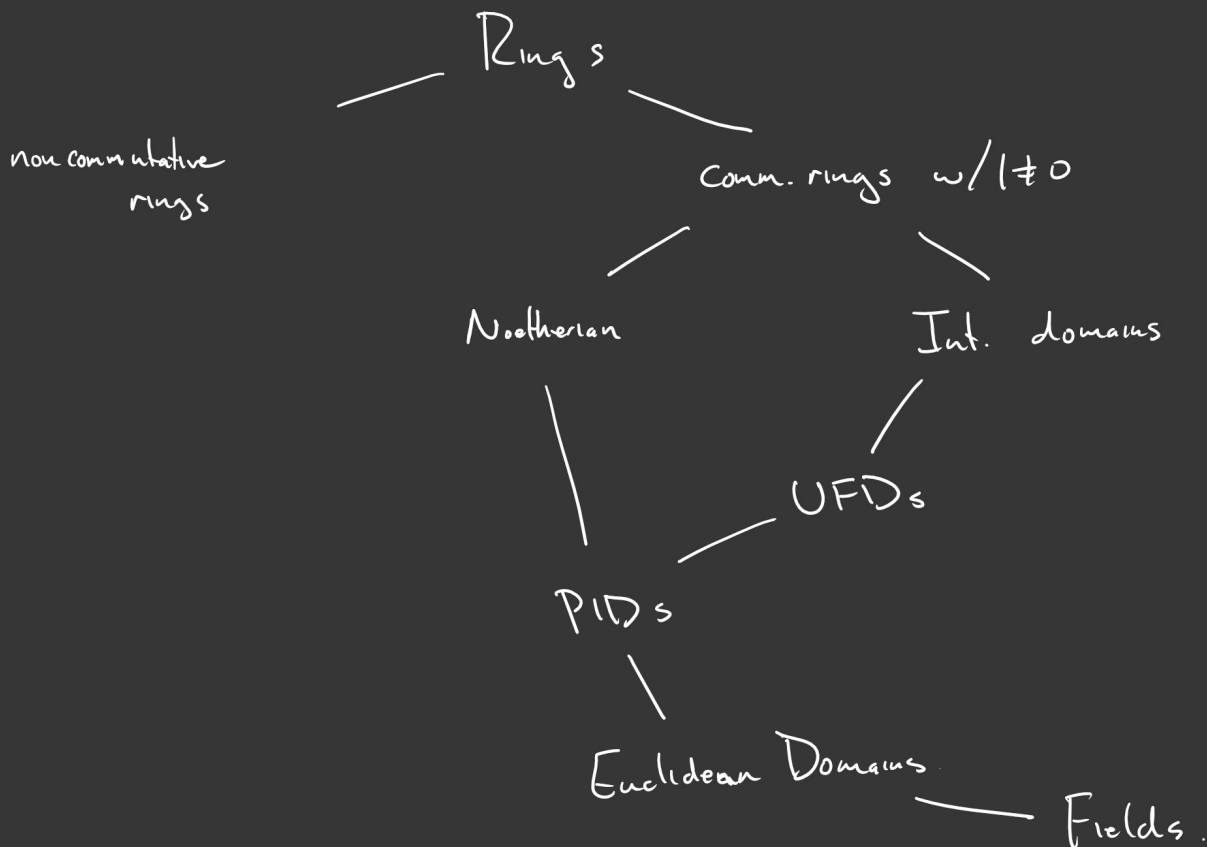 Rings
non commutative
rings
Comm. rings w/ 1≠0
Noetherian
Int. domains
UFDs
PIDs
Euclidean Domains
Fields.